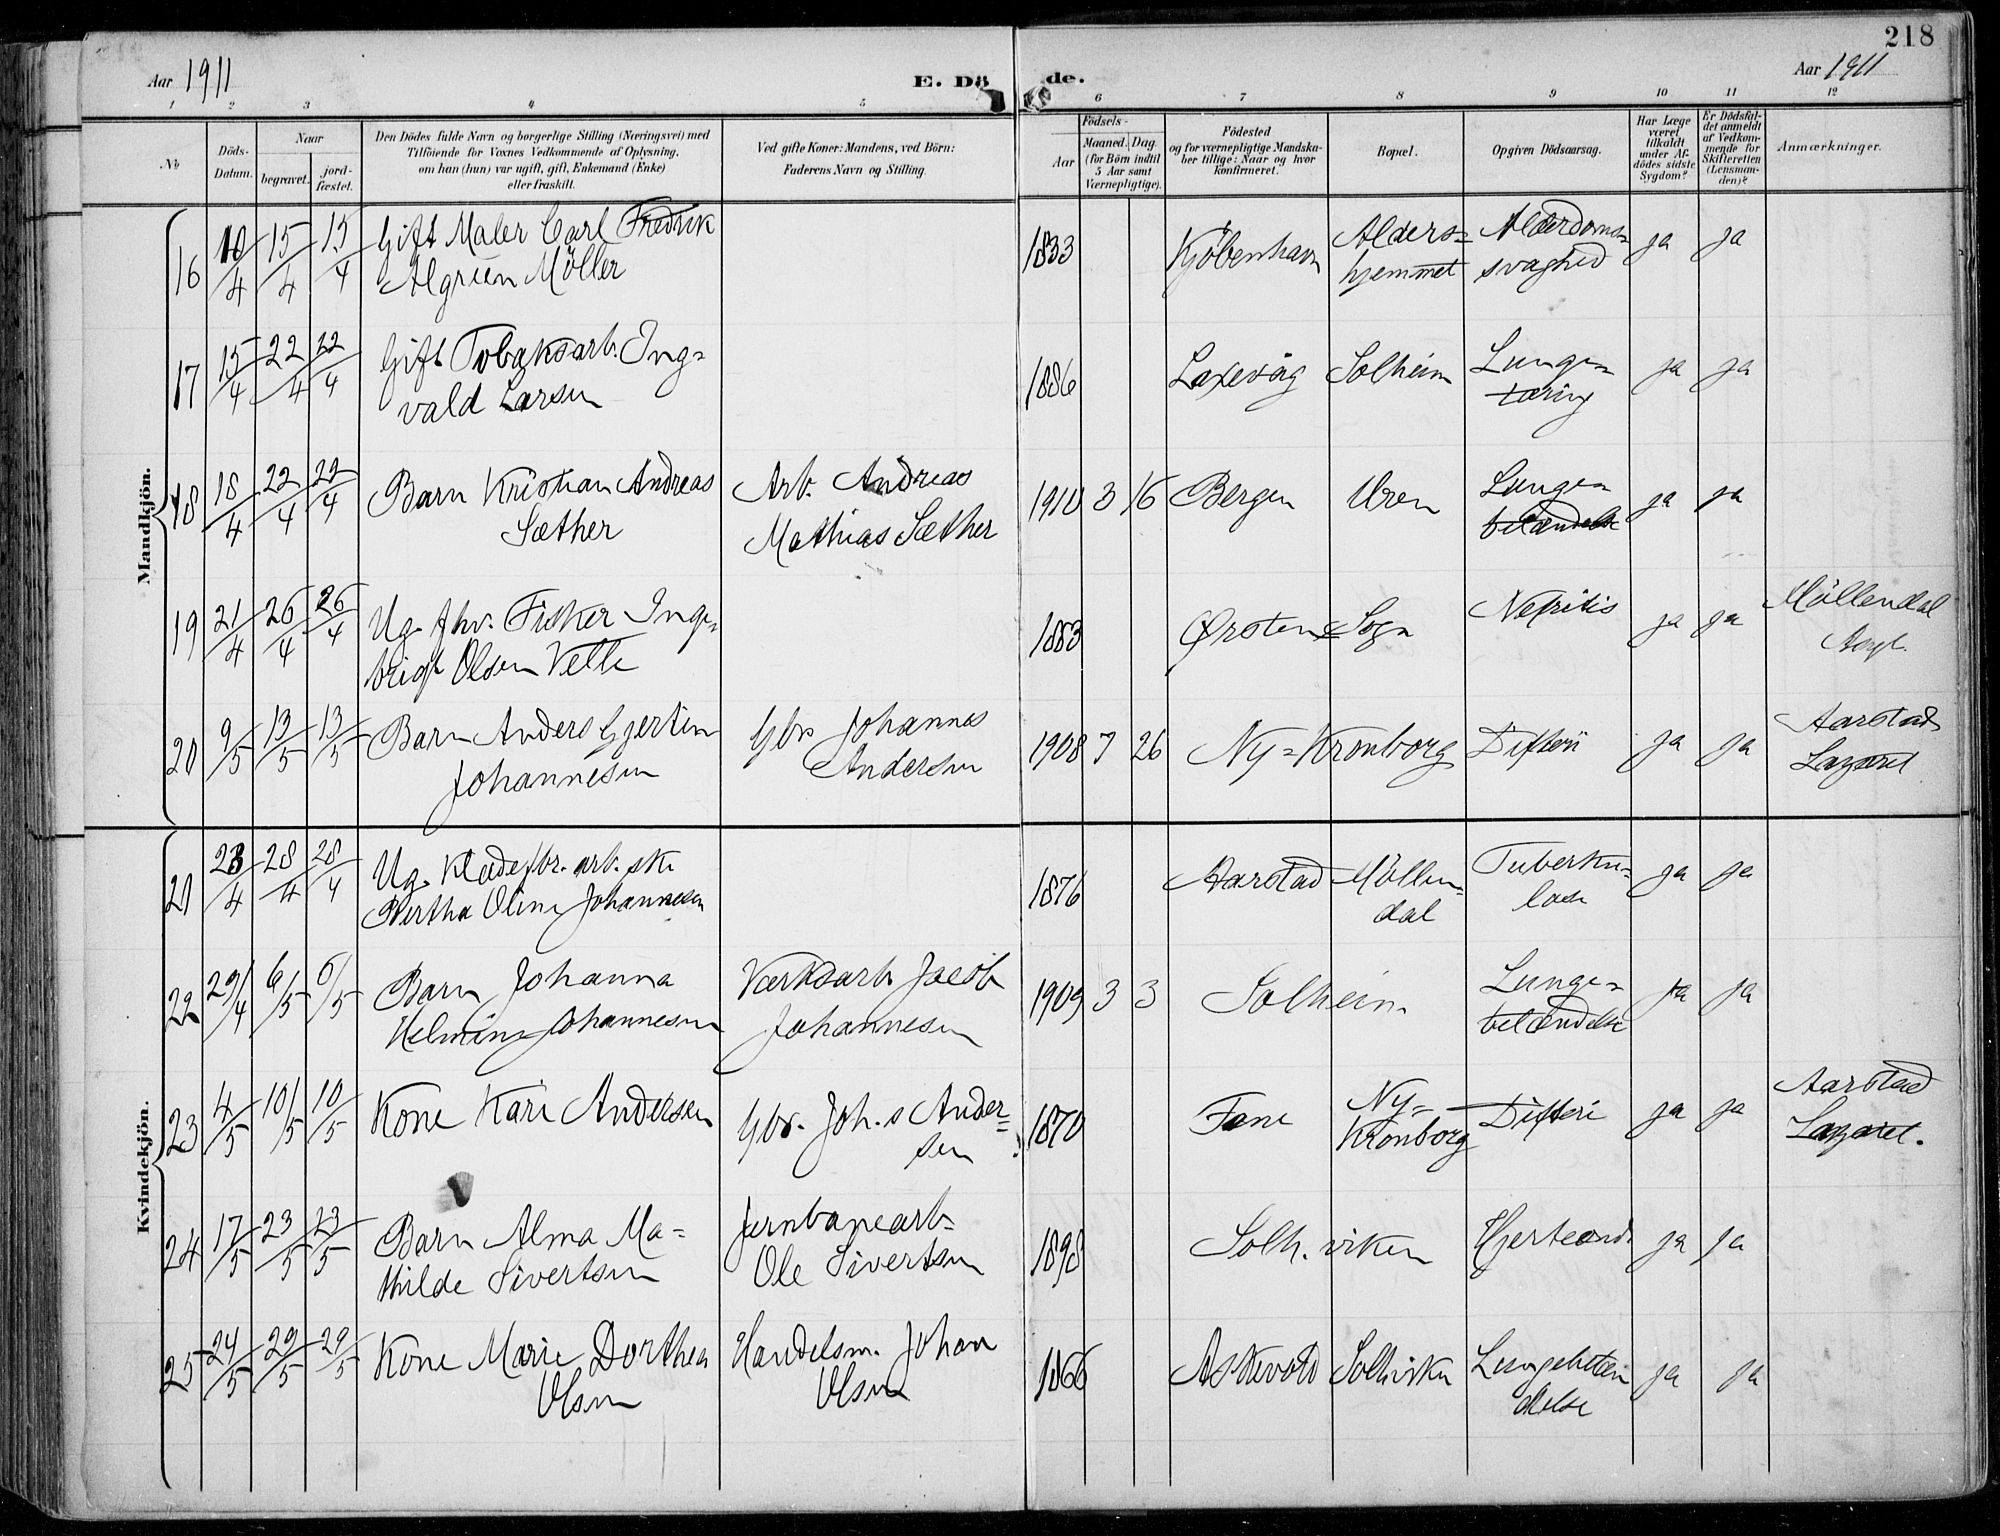 218
Aar 1911
E. Dö
de.
Aar 1911
1 2 3 4 5 6 7 8 9 10 11 12
No
Döds-
Datum.
Naar
begravet.
jord-
fæstet.
Den Dödes fulde Navn og borgerlige Stilling (Næringsvei) med
Tilföiende for Voxnes Vedkommende af Oplysning,
om han (hun) var ugift, gift, Enkemand (Enke)
eller fraskilt.
Ved gifte Koner: Mandens, ved Börn:
Faderens Navn og Stilling.
Födsels-
Aar
Maaned. Dag.
(for Börn indtil
5 Aar samt
Værnepligtige).
Födested
og for værnepligtige Mandska-
ber tillige: Naar og hvor
konfirmeret.
Bopæl.
Opgiven Dödsaarsag.
Har Læge
været
tilkaldt
under Af-
dödes sidste
Sygdom?
Er Dödsfal-
det anmeldt
af Vedkom-
mende for
Skifteretten
(Lensman-
den)?
Anmærkninger.
Mandkjön.
16 10/4 15/4 15/4 Gift Maler Carl Fredrik 1833 Kjöbenhavn Alders= Alderdoms= ja ja
Algreen Möller hjemmet svaghed
17 15/4 22/4 22/4 Gift Tobaksarb. Ing= 1886 Laxevåg Solheim Lunge= ja ja
vald Larsen tæring
18 18/4 22/4 22/4 Barn Kristian Andreas Arb. Andreas 1910 3 16 Bergen Uren Lunge= ja ja
Sæther Mathias Sæther betændelse
19 21/4 26/4 26/4 Ug. fhv. Fisker Inge= 1883 Ørsten Sogn Nefritis ja ja Möllendal
brigt Olsen Vette Asyl.
20 9/5 13/5 13/5 Barn Anders Gjertin Gbr Johannes 1908 7 26 Ny=Kronborg Difteri ja ja Aarstad
Johannesen Andersen Lazaret
Kvindekjön.
21 23/4 28/4 28/4 Ug. Klædefbr. arb. ske 1876 Aarstad Möllen= Tuberku= ja ja
Bertha Oline Johannesen dal lose
22 29/4 6/5 6/5 Barn Johanna Værksarb. Jacob 1909 3 3 Solheim Lunge= ja ja
Helmine Johannesen Johannesen betændelse
23 4/5 10/5 10/5 Kone Kari Andersen Gbr. Joh.s Ander= 1870 Fane Ny= Difteri ja ja Aarstad
sen Kronborg Lazaret.
24 17/5 23/5 23/5 Barn Alma Ma= Jernbanearb. 1898 Solh.viken Hjerteonde ja ja
thilde Sivertsen Ole Sivertsen
25 24/5 29/5 29/5 Kone Marie Dorthea Handelsm. Johan 1866 Askevold Solhviken Lungebetæn ja ja
Olsen Olsen delse